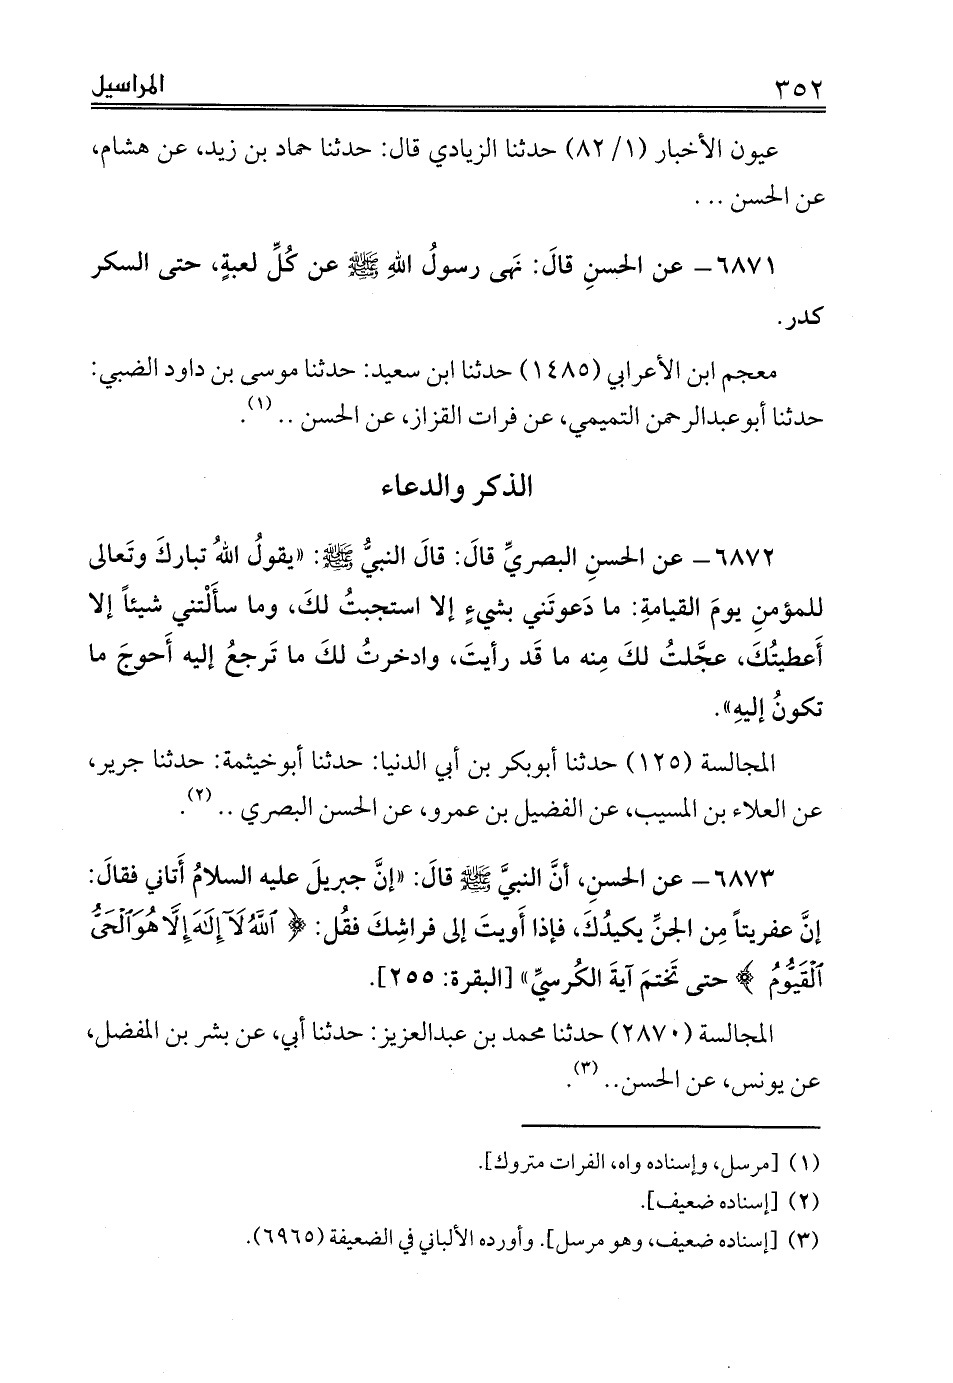 ٣٥٢ المراسيل
عيون الأخبار (١/ ٨٢) حدثنا الزيادي قال: حدثنا حماد بن زيد، عن هشام،
عن الحسن ...
٦٨٧١ـ عن الحسنِ قالَ: نَهى رسولُ اللهِ ﷺ عن كُلِّ لعبةٍ، حتى السكر
كدر.
معجم ابن الأعرابي (١٤٨٥) حدثنا ابن سعيد: حدثنا موسى بن داود الضبي:
حدثنا أبوعبدالرحمن التميمي، عن فرات القزاز، عن الحسن .. (١).
الذكر والدعاء
٦٨٧٢ـ عن الحسنِ البصريِّ قالَ: قالَ النبيُّ ﷺ: «يقولُ اللهُ تباركَ وتَعالى
للمؤمنِ يومَ القيامةِ: ما دَعوتَني بشيءٍ إلا استجبتُ لكَ، وما سأَلْتني شيئاً إلا
أَعطيتُكَ، عجَّلتُ لكَ مِنه ما قَد رأيتَ، وادخرتُ لكَ ما تَرجعُ إليه أَحوجَ ما
تكونُ إليهِ».
المجالسة (١٢٥) حدثنا أبوبكر بن أبي الدنيا: حدثنا أبوخيثمة: حدثنا جرير،
عن العلاء بن المسيب، عن الفضيل بن عمرو، عن الحسن البصري .. (٢).
٦٨٧٣ـ عن الحسنِ، أنَّ النبيَّ ﷺ قالَ: «إنَّ جبريلَ عليه السلامُ أَتاني فقالَ:
إنَّ عفريتاً مِن الجنِّ يكيدُكَ، فإذا أَويتَ إلى فراشِكَ فقُل: ﴿ ٱللَّهُ لَآ إِلَٰهَ إِلَّا هُوَ ٱلْحَىُّ
ٱلْقَيُّومُ ﴾ حتى تَختمَ آيةَ الكُرسيِّ» [البقرة: ٢٥٥].
المجالسة (٢٨٧٠) حدثنا محمد بن عبدالعزيز: حدثنا أبي، عن بشر بن المفضل،
عن يونس، عن الحسن.. (٣).
(١) [مرسل، وإسناده واه، الفرات متروك].
(٢) [إسناده ضعيف].
(٣) [إسناده ضعيف، وهو مرسل]. وأورده الألباني في الضعيفة (٦٩٦٥).